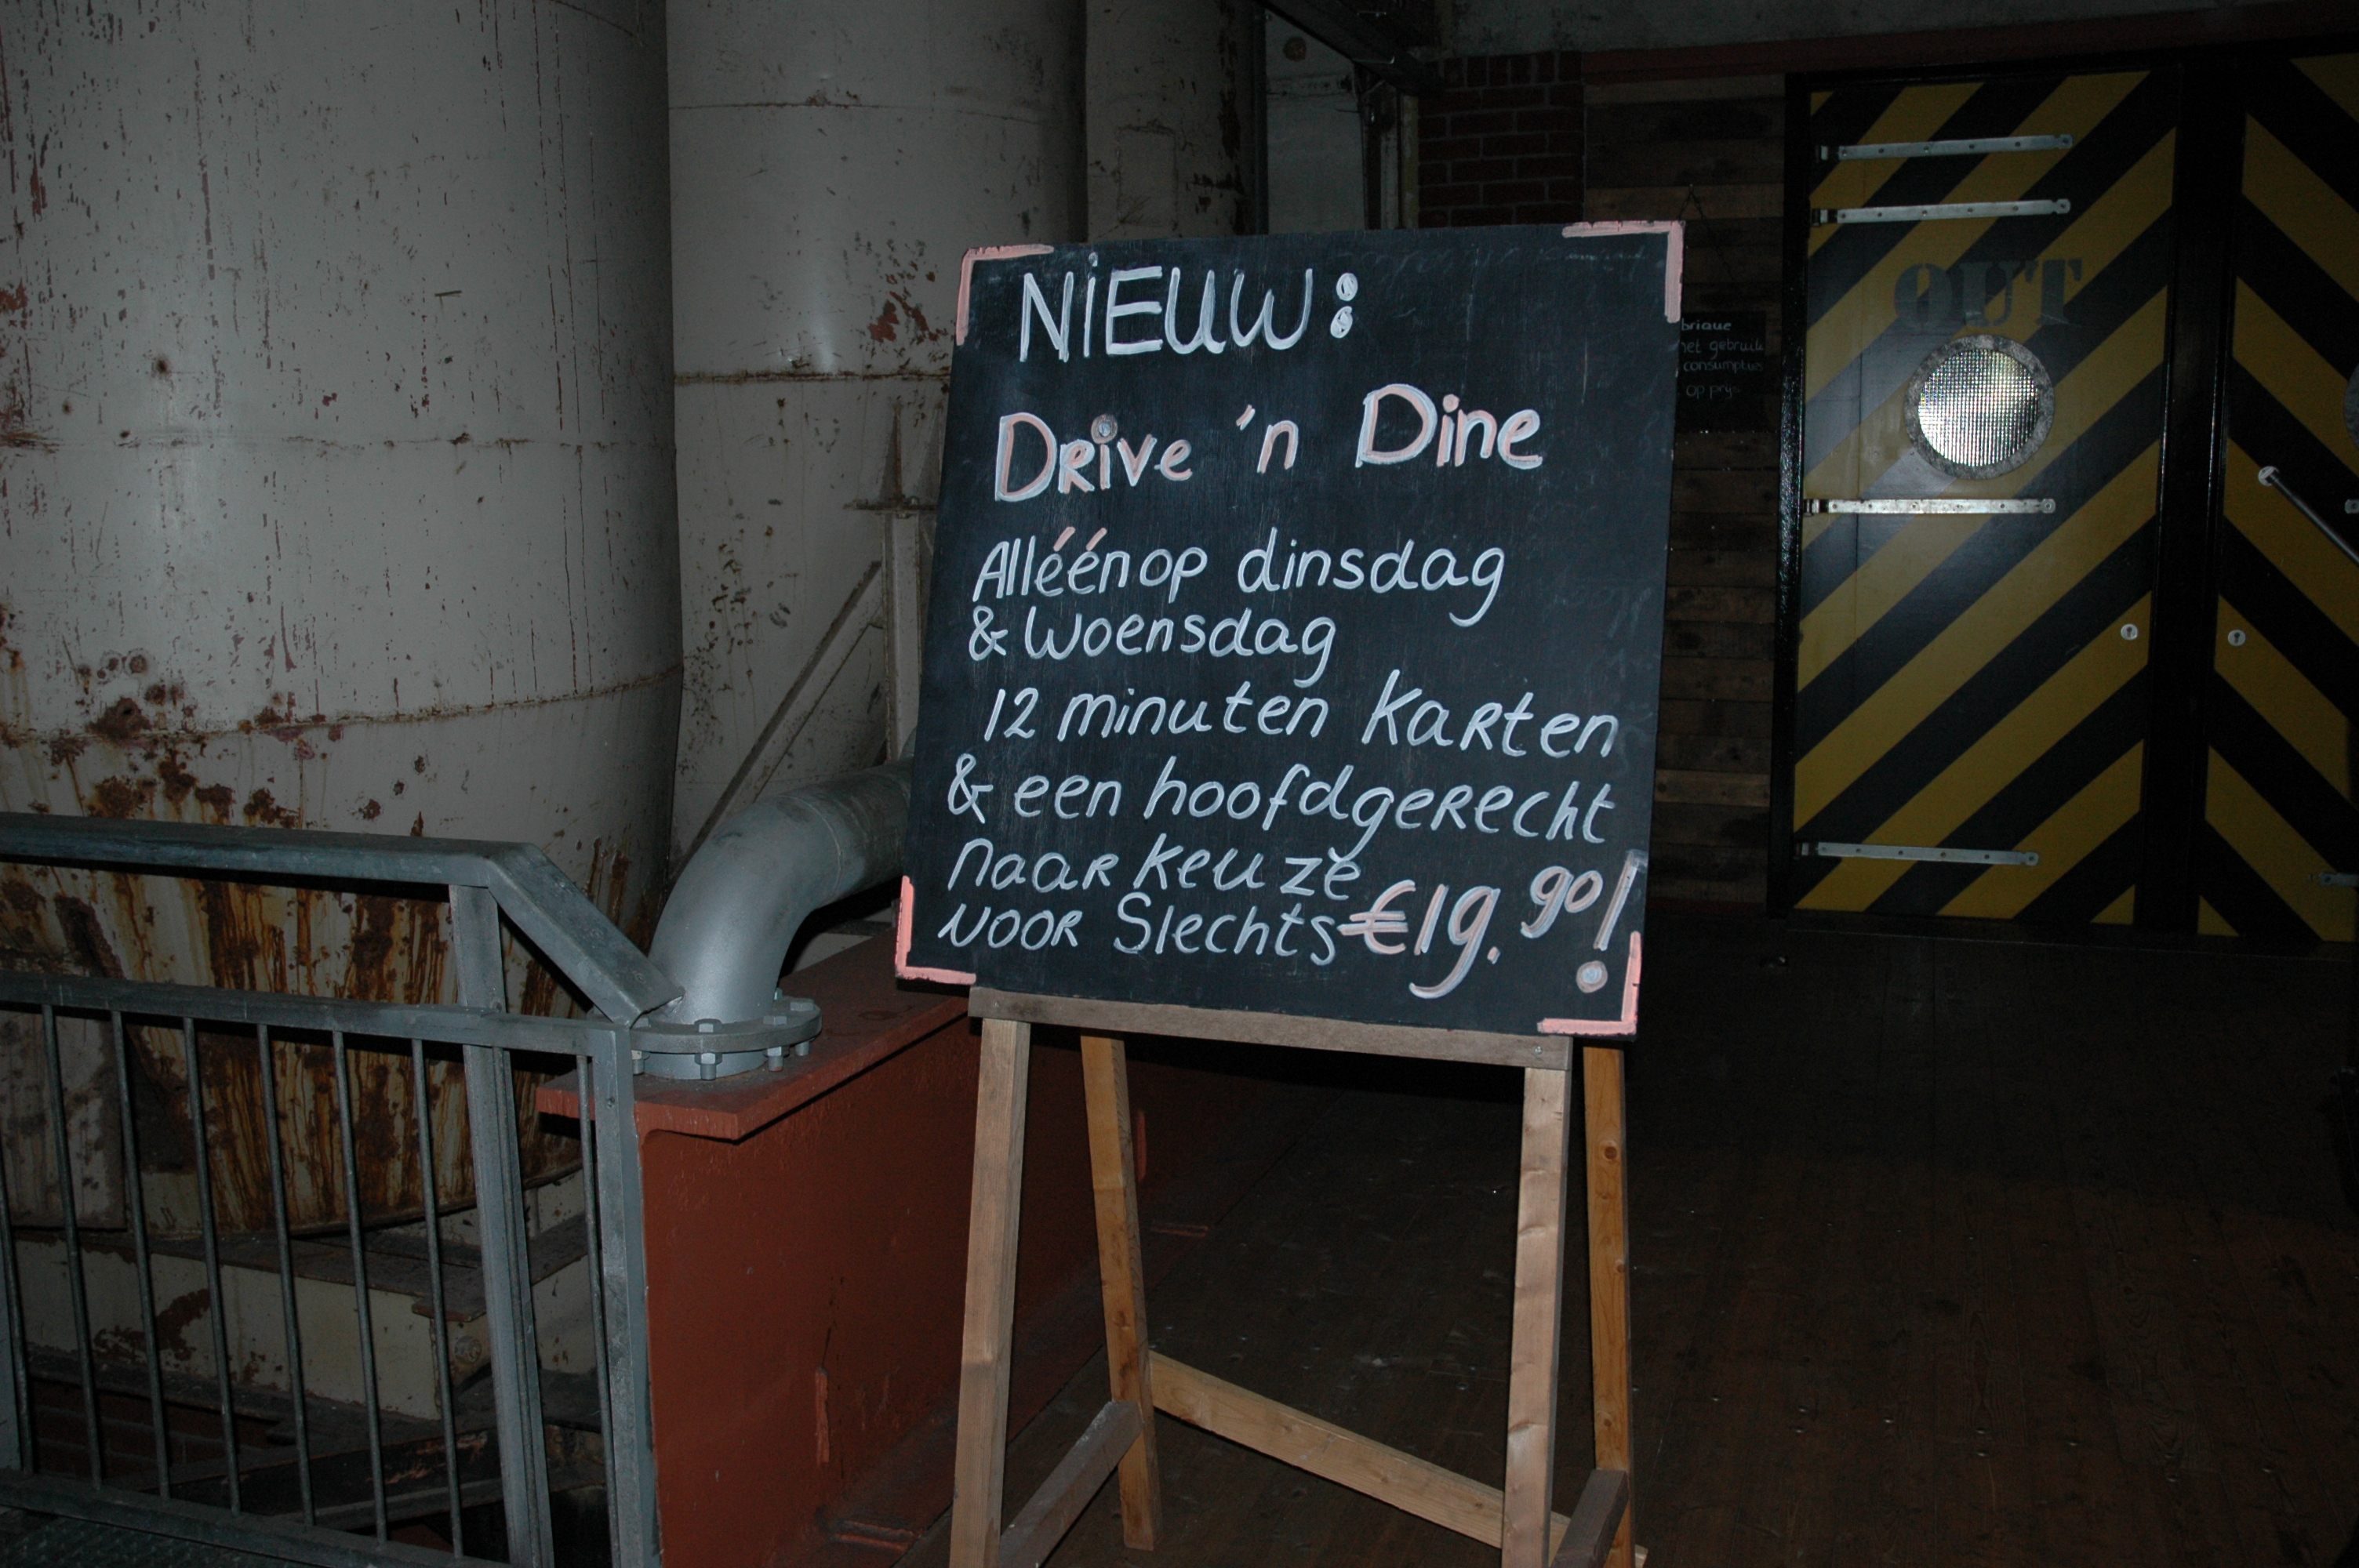 NiEUW:
Drive 'n Dine
Alléén op dinsdag
& woensdag
12 minuten karten
& een hoofdgerecht
naar keuze
voor slechts €19.90!
OUT
het gebruik
consumpties
op prijs